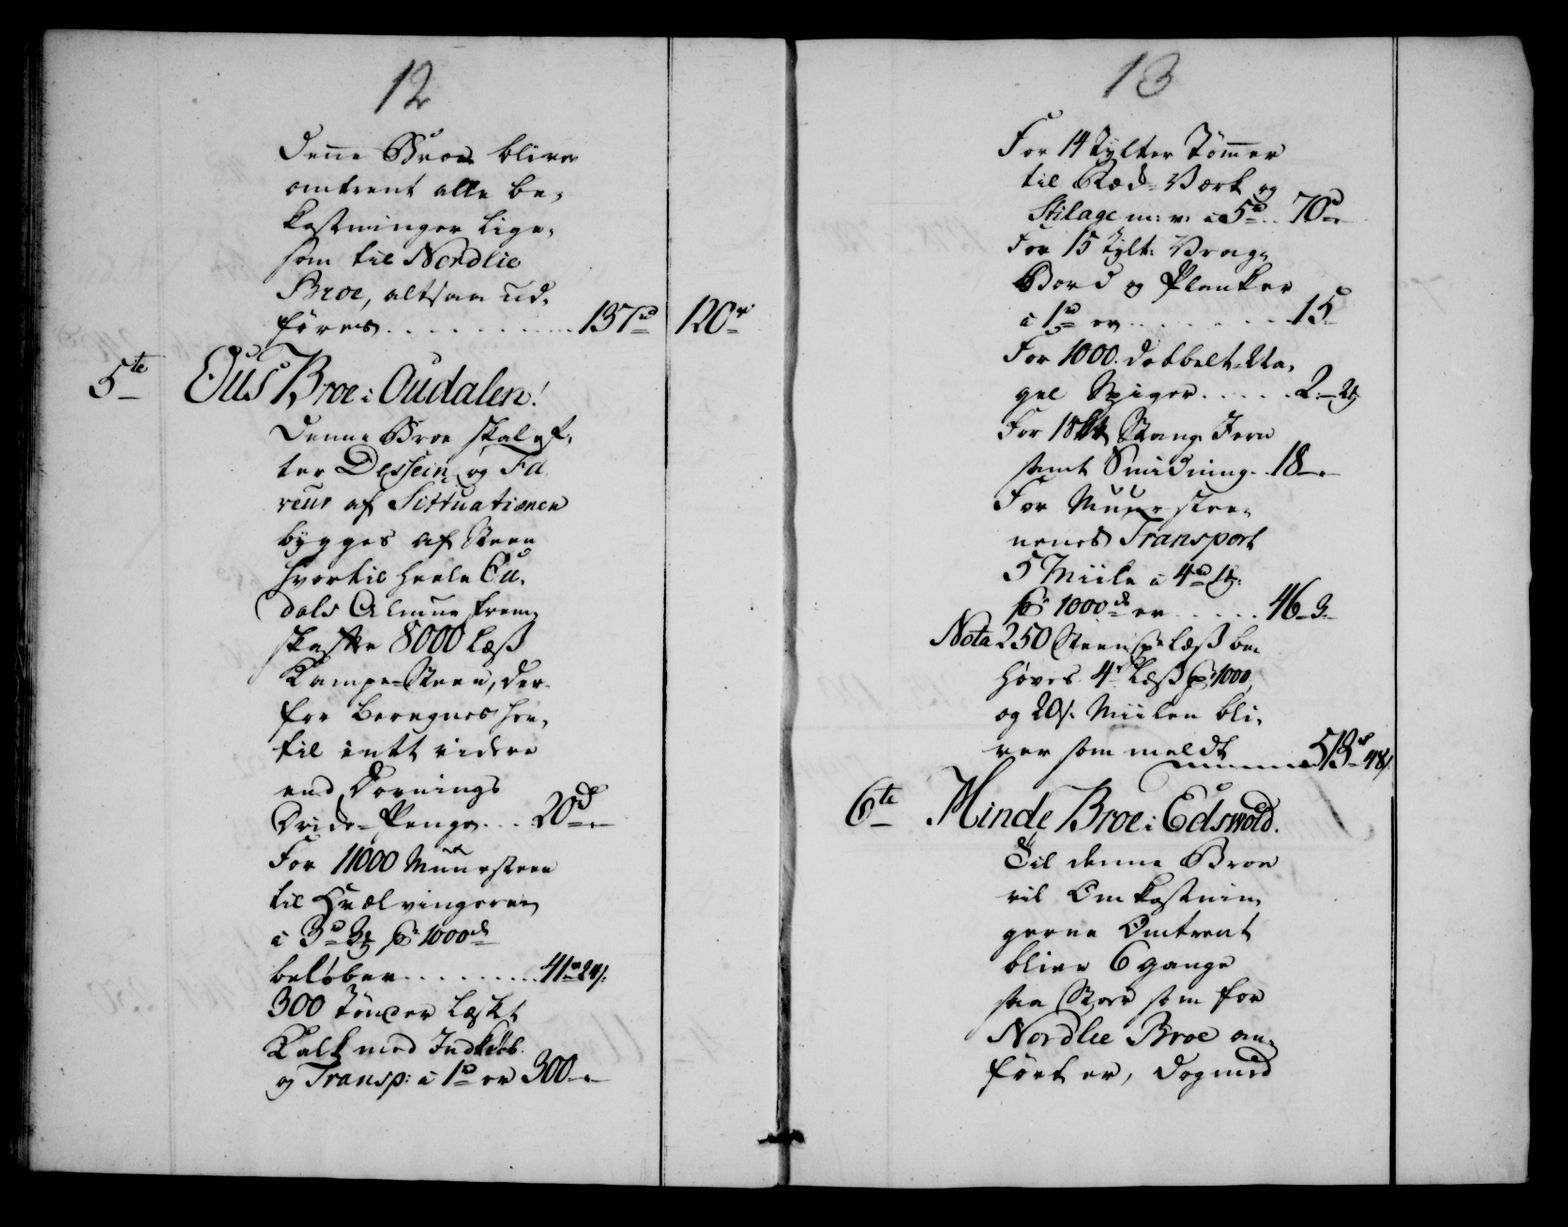 12
Denne Broe bliver
omtrent alle be-
kostninger lige-
som til Nordlie
Broe, altsaa ud-
føres . . . . . . . . . . 137 120
5te Ous Broe i Oudalen!
Denne Broe skal ef-
ter Dessein og Fa
veur af Sittuationen
bygges af Steen
hvortil heele Ou-
dals Almue frem-
skaffe 8000 Læß
Kampe-Steen, der-
for beregnes her-
til intt videre
end Dornings
Dride-Penge . . . 20d
For 11000 Muursteen
til Hvælvingerne
a 3d 3 pr 1000de
beløber . . . . . . . . 41 24s.
300 Tønder Læskt
Kalk med Indkiøb
og Transp: a 1d er 300
13
For 14 Tylter Tømmer
til Ræd-Værk og
Stilage m: v: a 5d . . 70d
For 15 Tylt: Vrag-
Bord og Planker
a 1d er . . . . . . . 15
For 1000 dobbelt-Na-
gel Spiger . . . . . 2. 2
For 18 Stang Jern
samt Smidning . 18
For Muurstee-
nenes Transport
5 Miile a 4d
pr 1000de er . . . . . 46. 3.
Nota 250 Steen pr Læß be-
høves 4r Læß pr 1000,
og 20s. Miilen bli-
ver som meldt 513 48s.
6te Minde Broe i Edswold.
Til denne Broe
vil Omkostnin-
gerne Omtrent
blive 6 gange
saa Stor som for
Nordlie Broe an-
ført er, dog med